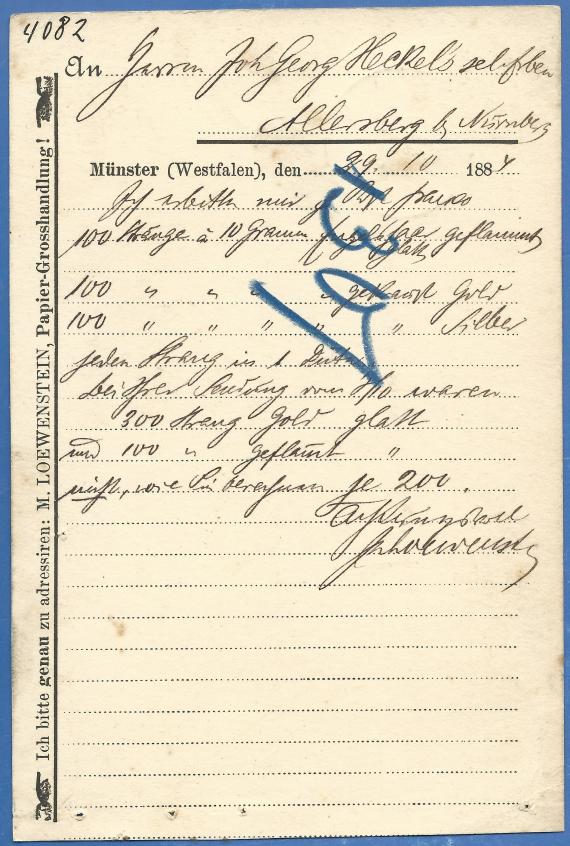 4082
An Herrn Joh Georg Heckel's sel. Erben
Allersberg b Nürnberg
Münster (Westfalen), den 29. 10 1884
Ich erbitte mir p. Post franko
100 Stränge à 10 Gramm geflammt
glatt
100 " " " " Gold
100 " " " " " Silber
jeden Strang in 1
bei Ihrer Sendung vom waren
300 Strang Gold glatt
und 100 " geflamt "
nicht, wie Sie berechnen je 200.
Achtungsvoll
Loewenstein
Ich bitte genau zu adressiren: M. LOEWENSTEIN, Papier-Grosshandlung!